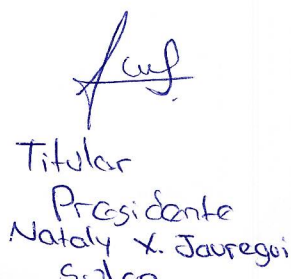 Titular
Presidente
Nataly X. Jauregui